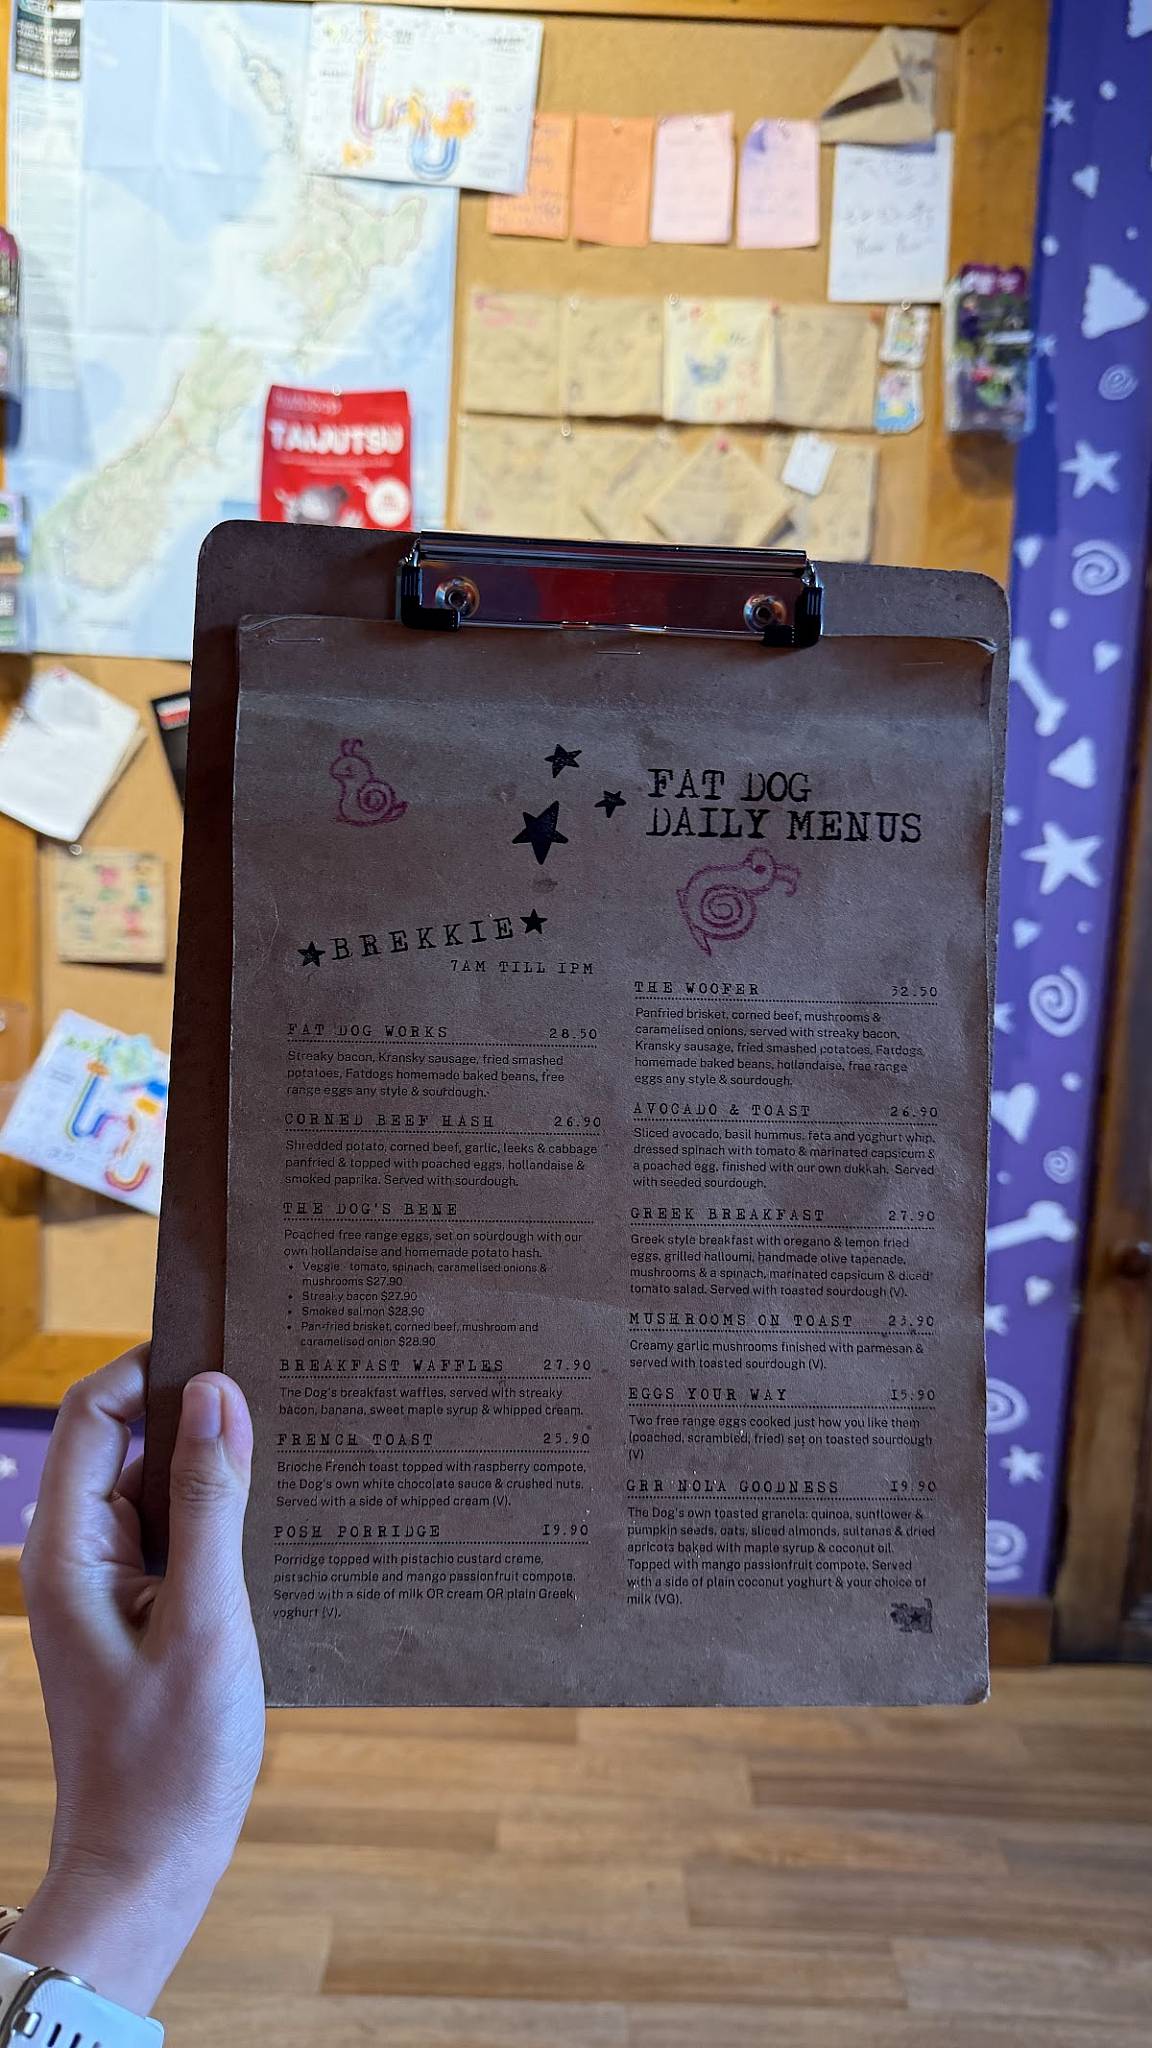 TAIJUTSU
FAT DOG
DAILY MENUS
BREKKIE
7AM TILL 1PM
FAT DOG WORKS 28.50
Streaky bacon, Kransky sausage, fried smashed
potatoes, Fatdogs homemade baked beans, free
range eggs any style & sourdough.
CORNED BEEF HASH 26.90
Shredded potato, corned beef, garlic, leeks & cabbage
panfried & topped with poached eggs, hollandaise &
smoked paprika. Served with sourdough.
THE DOG'S BENE
Poached free range eggs, set on sourdough with our
own hollandaise and homemade potato hash.
• Veggie - tomato, spinach, caramelised onions &
mushrooms $27.90
• Streaky bacon $27.90
• Smoked salmon $28.90
• Pan-fried brisket, corned beef, mushroom and
caramelised onion $28.90
BREAKFAST WAFFLES 27.90
The Dog's breakfast waffles, served with streaky
bacon, banana, sweet maple syrup & whipped cream.
FRENCH TOAST 25.90
Brioche French toast topped with raspberry compote,
the Dog's own white chocolate sauce & crushed nuts.
Served with a side of whipped cream (V).
POSH PORRIDGE 19.90
Porridge topped with pistachio custard creme,
pistachio crumble and mango passionfruit compote.
Served with a side of milk OR cream OR plain Greek
yoghurt (V).
THE WOOFER 32.50
Panfried brisket, corned beef, mushrooms &
caramelised onions, served with streaky bacon,
Kransky sausage, fried smashed potatoes, Fatdogs
homemade baked beans, hollandaise, free range
eggs any style & sourdough.
AVOCADO & TOAST 26.90
Sliced avocado, basil hummus, feta and yoghurt whip,
dressed spinach with tomato & marinated capsicum &
a poached egg, finished with our own dukkah. Served
with seeded sourdough.
GREEK BREAKFAST 27.90
Greek style breakfast with oregano & lemon fried
eggs, grilled halloumi, handmade olive tapenade,
mushrooms & a spinach, marinated capsicum & diced
tomato salad. Served with toasted sourdough (V).
MUSHROOMS ON TOAST 23.90
Creamy garlic mushrooms finished with parmesan &
served with toasted sourdough (V).
EGGS YOUR WAY 15.90
Two free range eggs cooked just how you like them
(poached, scrambled, fried) set on toasted sourdough
(V)
GRR NOLA GOODNESS 19.90
The Dog's own toasted granola: quinoa, sunflower &
pumpkin seeds, oats, sliced almonds, sultanas & dried
apricots baked with maple syrup & coconut oil.
Topped with mango passionfruit compote. Served
with a side of plain coconut yoghurt & your choice of
milk (VG).